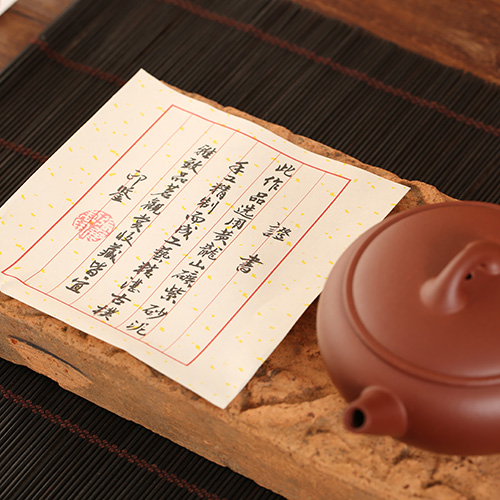 證書
此作品选用黄龍山礦紫砂泥
手工精制而成工藝精湛古樸
雅致品茗觀赏收藏皆宜
印鉴